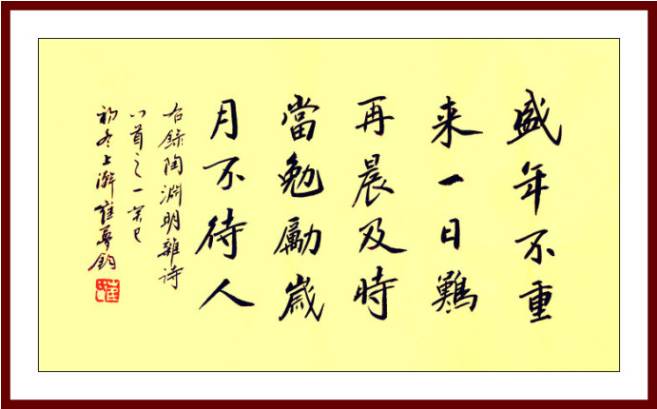 盛年不重
来一日難
再晨及時
當勉勵歲
月不待人
右錄陶淵明雜诗
八首之一癸巳
初冬上澣崔